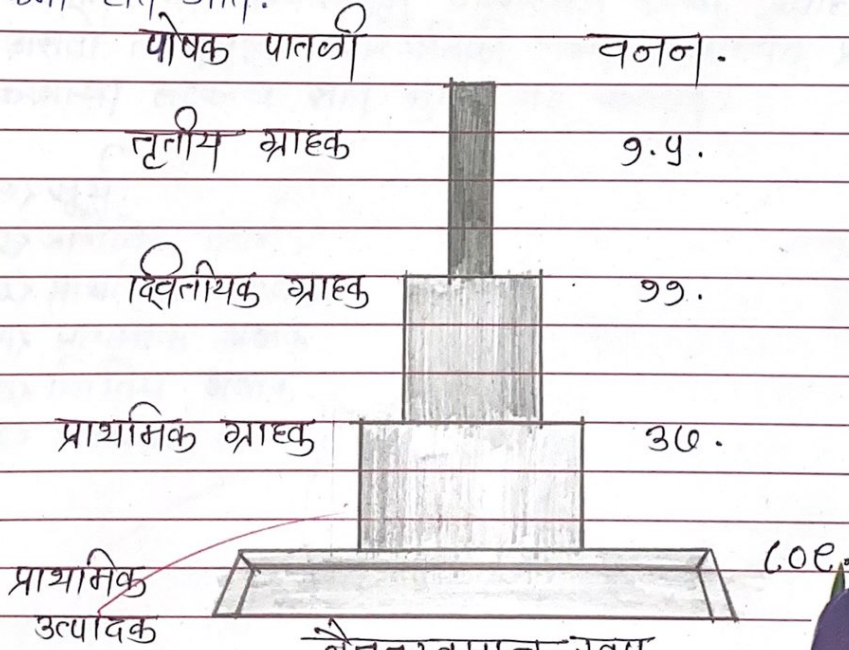 पोषक पातळी वजन.
तृतीय ग्राहक १.५.
द्वितीयक ग्राहक ११.
प्राथमिक ग्राहक ३७.
प्राथमिक ८०९.
उत्पादक